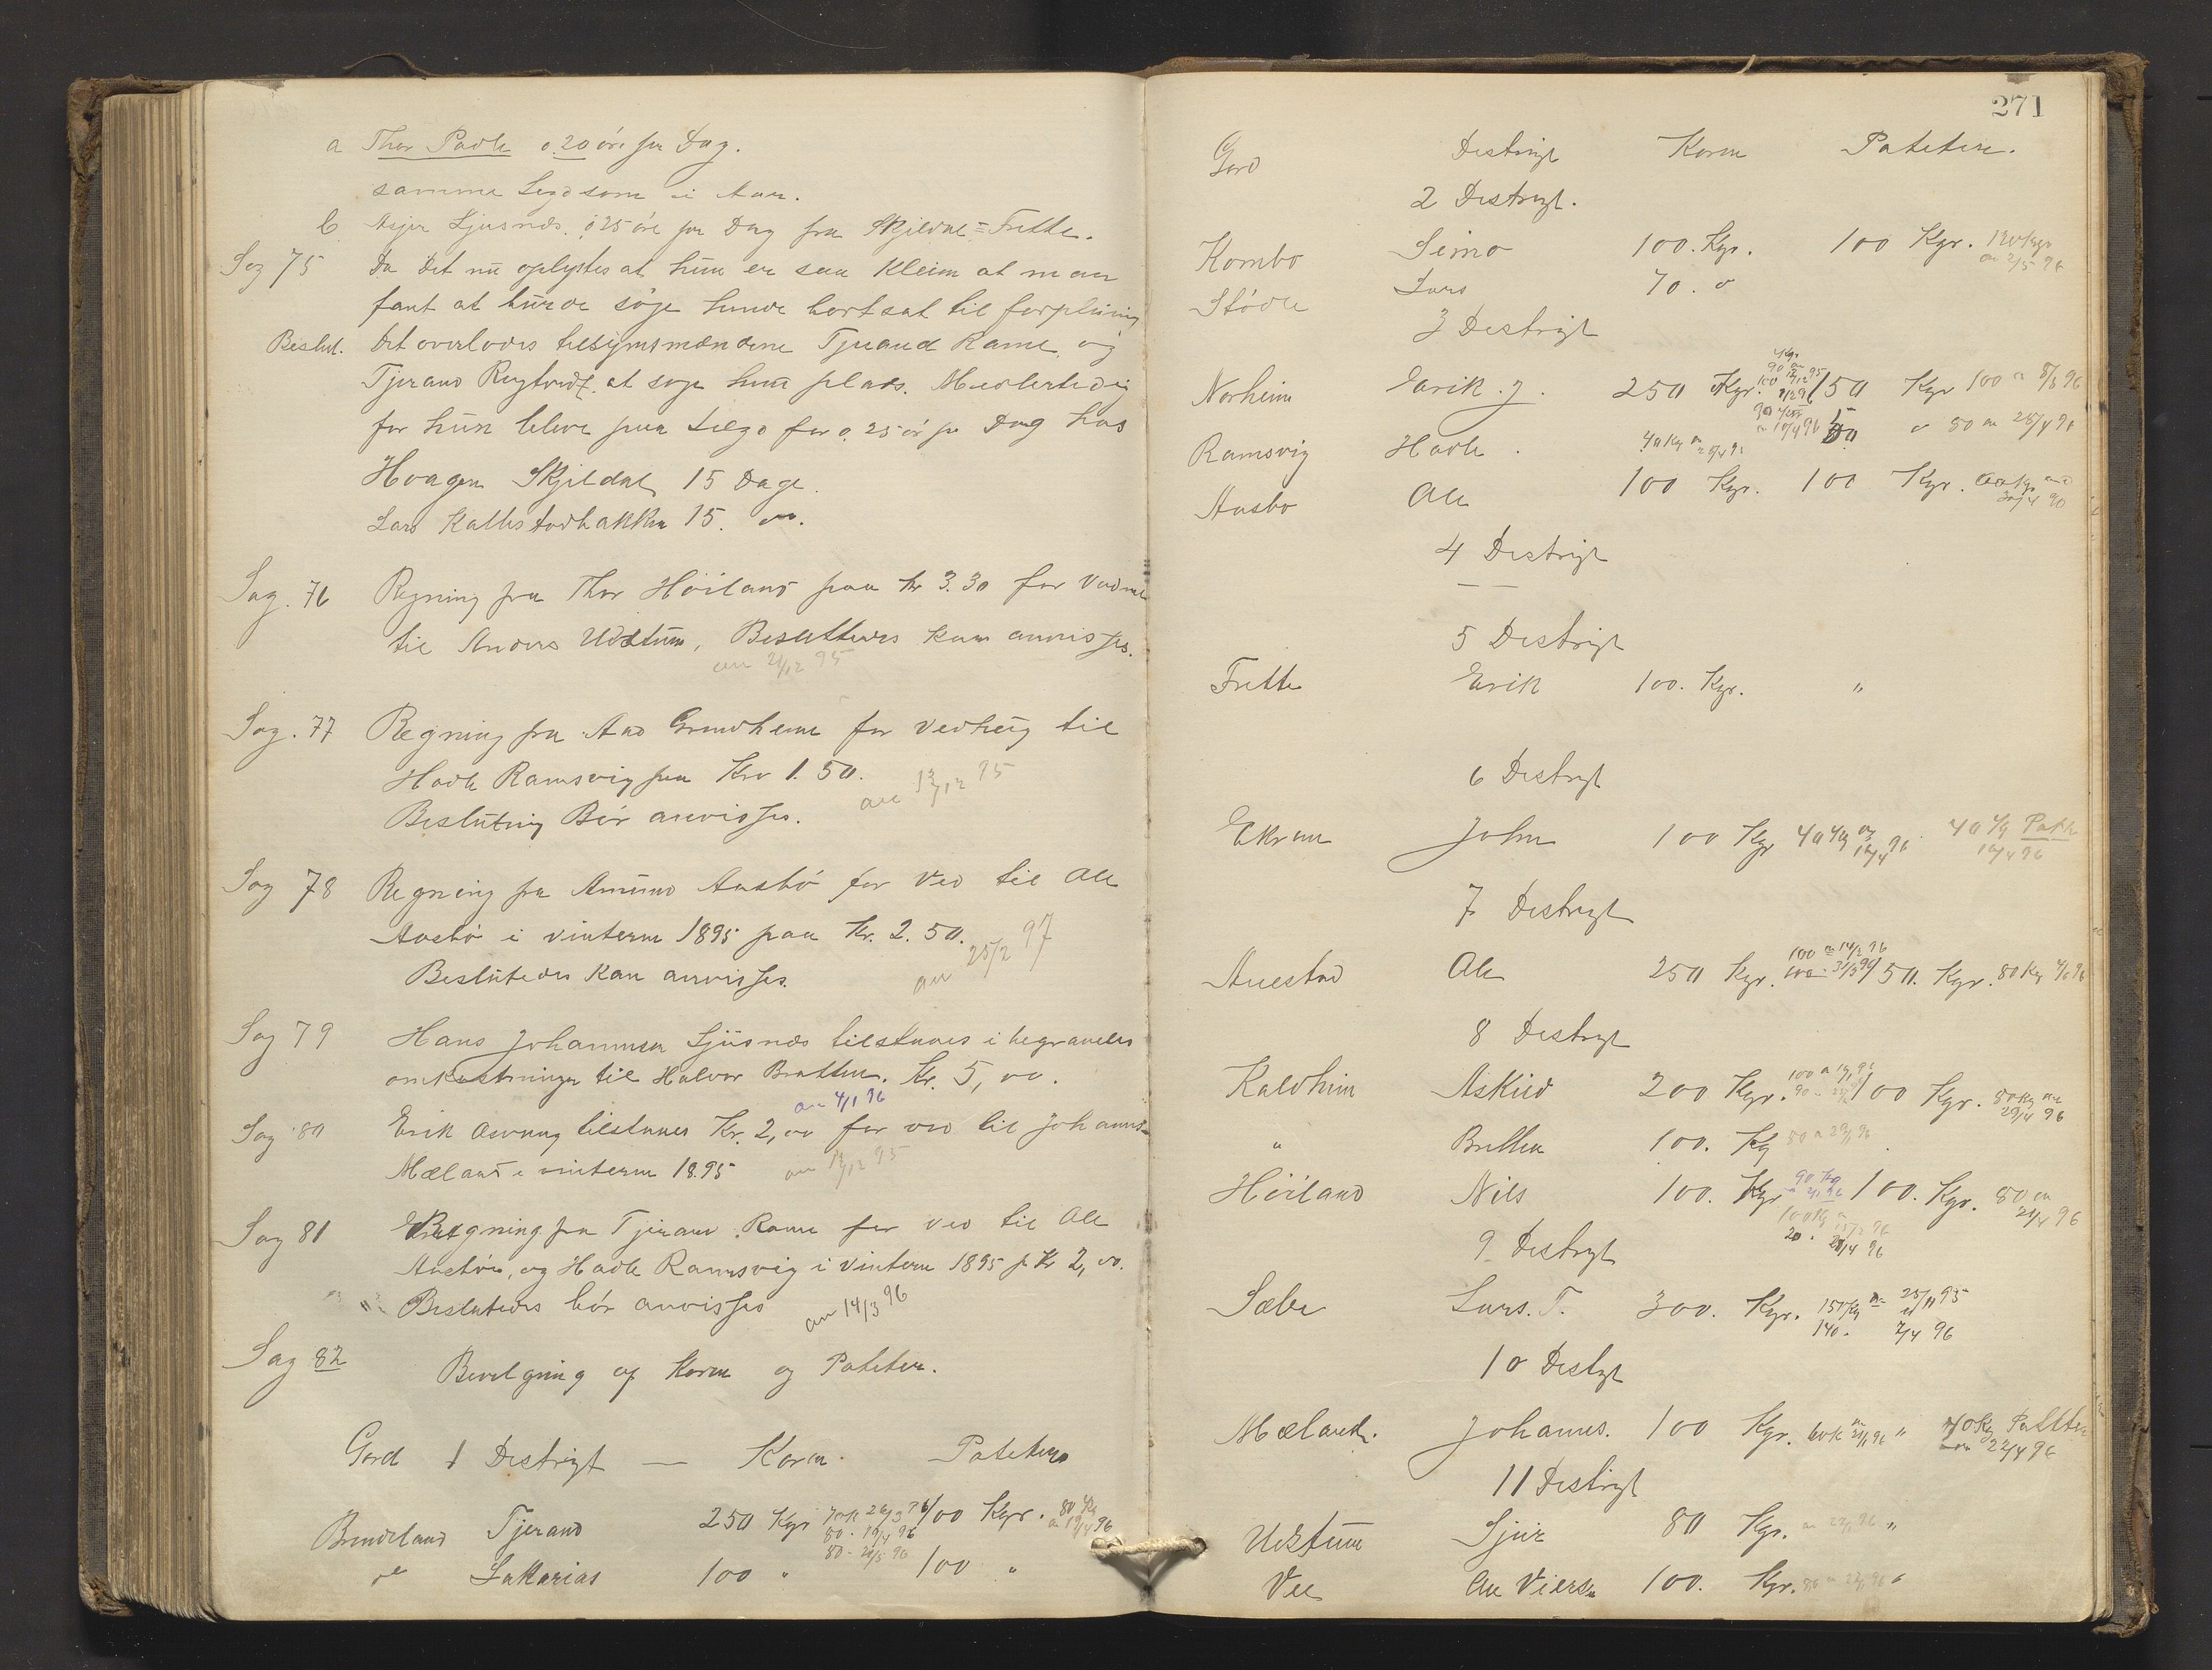 a Thor Padle 0.20 öre per Dag.
samme Legd som i Aar.
b Asjer Ljusnes. 0.25 öre per Dag fra Skjeldal = Frette.
Sag 75 Da Det nu oplystes at hun er saa Kleim at man
fant at burde söge hende bortsat til forpleining
Beslut. Det overlodes tilsynsmændene Tjerand Rame og
Tjerand at söge hun plads. Midlertidig
for hun blive paa Lægd for 0.25 ör pr Dag hos
Haagen Skjeldal 15 Dage.
Lars Kallestadbakken 15.
Sag. 76 Regning fra Thor Höiland paa Kr 3.30 for Vadmel
til Anders Udstum, Besluttedes kan anvisses.
an 21/12 95
Sag. 77 Regning fra Aad Grindheim for Vedhug til
Hadle Ramsvig paa Kro 1.50.
an 13/12 95
Beslutning Bör anvisses.
Sag 78 Regning fra Amund Austbö for Ved til Ole
Austbö i vinteren 1895 paa Kr. 2.50.
an 25/2 97
Beslutedes Kan anvisses.
Sag 79 Hans Johannesen Ljusnes tilstaaes i begravelses
omkostninger til Halvor Bratten. Kr. 5,00.
an 4/1 96
Sag 80 Erik tilstaaes Kr. 2,00 for ved til Johannes
Mæland i vinteren 1895 an 13/12 95
Sag 81 Regning fra Tjerand Rame for ved til Ole
Austbö, og Hadle Ramsvig i vinteren 1895 p Kr 2,00.
Beslutedes bör anvisses an 14/3 96
Sag 82 Bevelgning af Korn og Poteter.
Gard 1 Destrigt — Korn. Poteter
Brudeland Tjerand 250 Kgr 70K 26/3 96 100 Kgr. 80 Kg
80 - 19/4 96 an 19/4 96
80 - 20/5 96
" Sakarias 100 " 100 "
271
Gard Destrigt Korn Poteter.
2 Destrigt.
Kambo Simo 100. Kgr. 100 Kgr. 120 Kgr
an 2/5 96
Stödle Lars 70. "
3 Destrigt
Norheim Eerik. J. 250 Kgr. 150 Kgr 100 an 8/5 96
Ramsvig Hadle. 40 Kg 50 " 80 an 28/4 96
Austbo Ole 100 Kgr. 100 Kgr.
4 Destrigt
—
5 Destrigt
Frette Eerik 100. Kgr. "
6 Destrigt
Ekrene John 100 Kgr 40 Kg an 16/4 96 40 Kg Pot
16/4 96
7 Destrigt
Auestad Ole 250 Kgr. 100 an 14/2 96
100 - 31/3 96 150. Kgr. 80 Kg 4/6 96
8 Destrigt
Kaldheim Askild 200 Kgr. 100 Kgr. 80 Kg an
29/4 96
" Britten 100. Kg 80 an 29/1 96
Höiland Nils 100. Kgr 90 Kg 100. Kgr. 80 an
21/4 96
20. 21/4 96
9 Destrigt
Sæbe Lars. T. 300. Kgr. 150 Kg an 25/11 95
140. 7/4 96
10 Destrigt
Mæland. Johanes. 100 Kgr. " 40 Kg Potteter
an 22/4 96
11 Destrigt
Udstum Sjur 80 Kgr. "
Vee Ole Vierse 100. Kgr. "